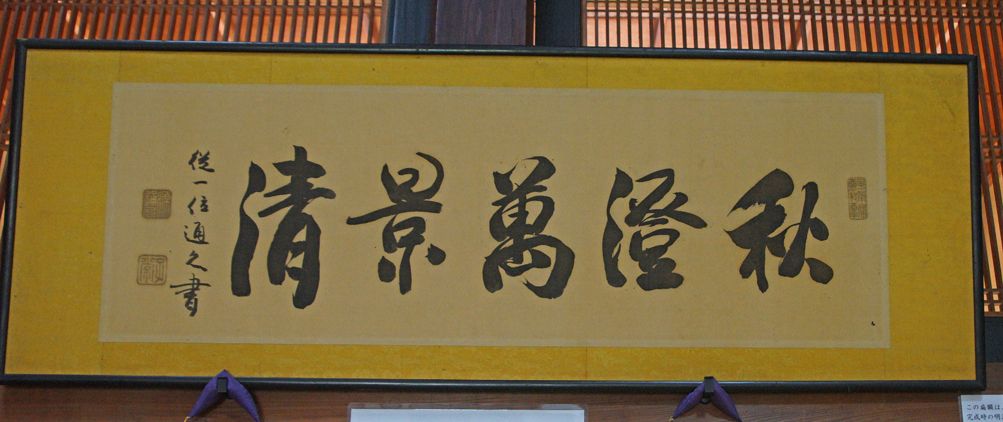 秋澄萬景清
従一位通久書
この扁額は、
完成時の明